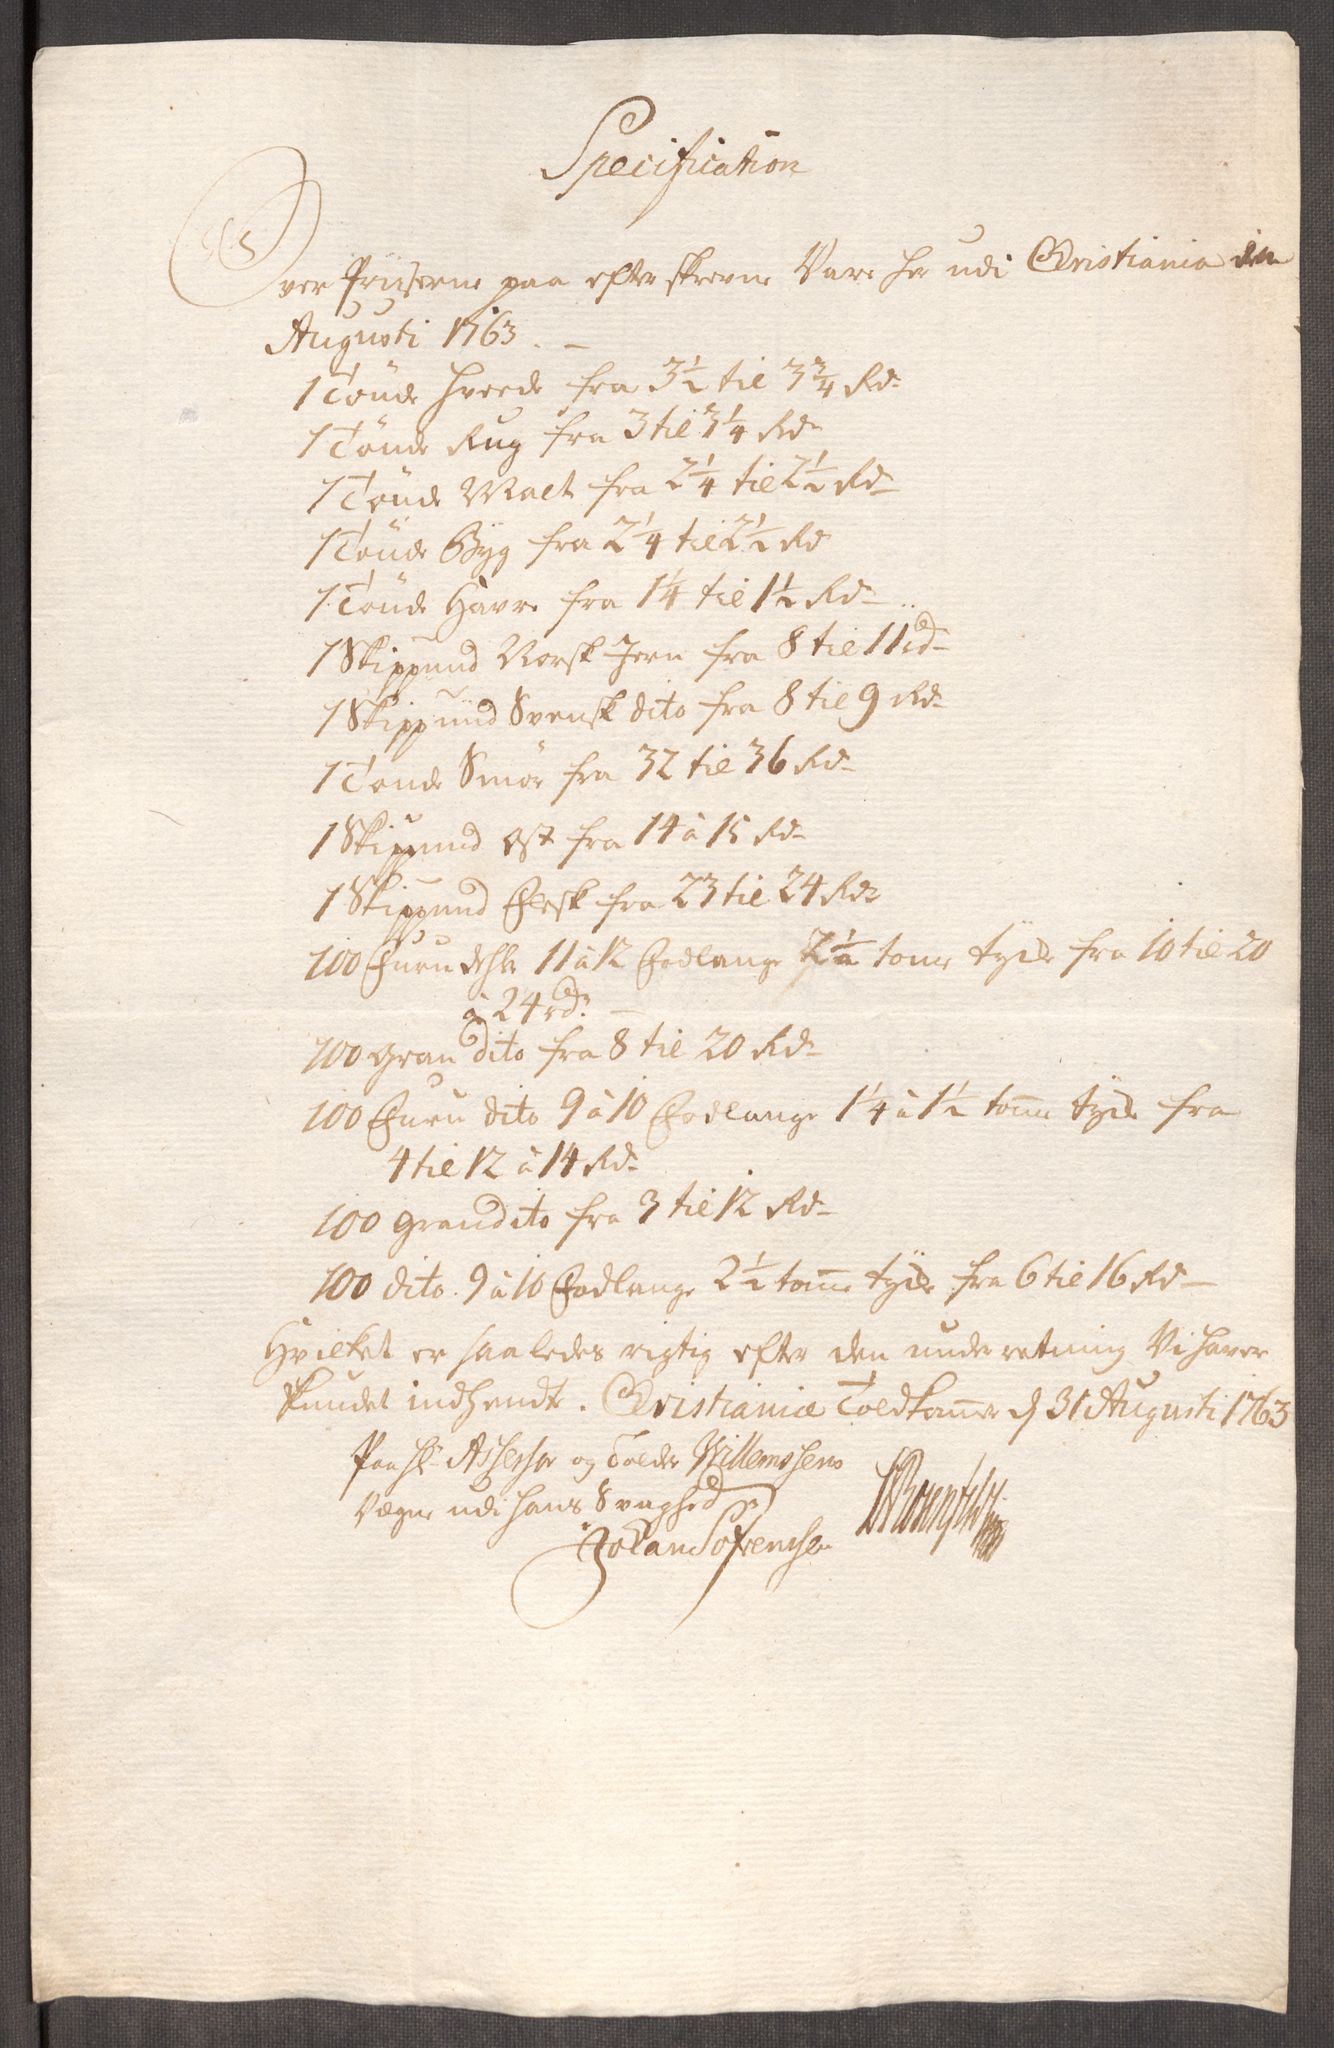 Specification
Over Priiserne paa efterskrevne Vare her udi Christiania den
Augusti 1763. –
1 Tönde Hvede fra 3½ til 3¾ Rd
1 Tönde Rug fra 3 til 3¼ Rd
1 Tönde Malt fra 2¼ til 2½ Rd
1 Tönde Byg fra 2¼ til 2½ Rd
1 Tönde Havre fra 1¼ til 1½ Rd
1 Skippund Norsk Jern fra 8 til 11 rd
1 Skippund Svensk dito fra 8 til 9 Rd
1 Tönde Smör fra 32 til 36 Rd
1 Skippund Ost fra 14 à 15 Rd
1 Skippund Flesk fra 23 til 24 Rd
100 Furu 11 à 12 Fodlange tome tycke fra 10 til 20
à 24 rd.
100 Gran dito fra 8 til 20 Rd
100 Furu dito 9 à 10 Fodlange 1¼ à 1½ tome tycke fra
4 til 12 à 14 Rd
100 Gran dito fra 3 til 12 Rd
100 dito 9 à 10 Fodlange 2½ tome tycke fra 6 til 16 Rd
Hvilket er saaledes rigtig efter den underretning Vi haver
kundet indhendte. Christianiæ Toldkamer d 31 Augusti 1763
Paa Hr Assessor og Tolder Willemssens
Vegne udi hans Svaghed
Johan Sörensen